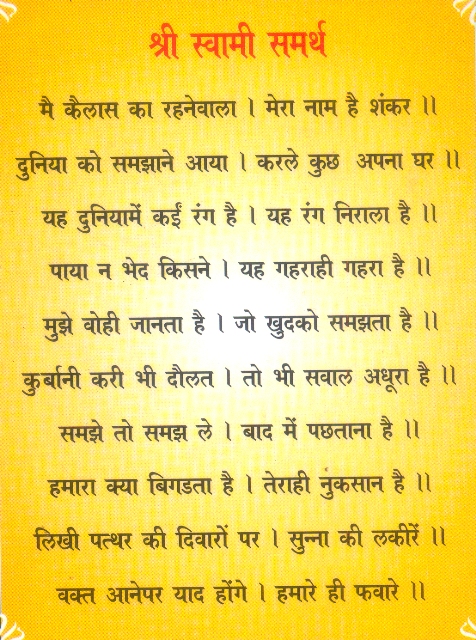 श्री स्वामी समर्थ
मै कैलास का रहनेवाला । मेरा नाम है शंकर ।।
दुनिया को समझाने आया । करले कुछ अपना घर ।।
यह दुनियामें कईं रंग है । यह रंग निराला है ।।
पाया न भेद किसने । यह गहराही गहरा है ।।
मुझे वोही जानता है । जो खुदको समझता है ।।
कुर्बानी करी भी दौलत । तो भी सवाल अधूरा है ।।
समझे तो समझ ले । बाद में पछताना है ।।
हमारा क्या बिगडता है । तेराही नुंकसान है ।।
लिखी पत्थर की दिवारों पर । सुन्ना की लकीरें ।।
वक्त आनेपर याद होंगे । हमारे ही फवारे ।।